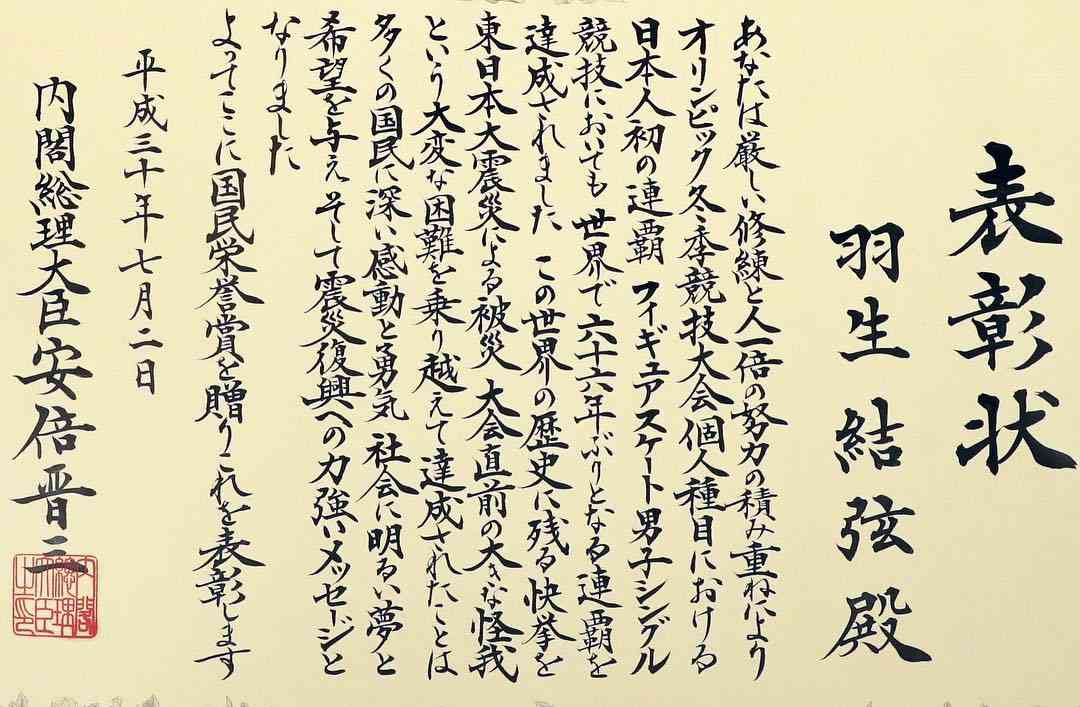 表彰状
羽生結弦殿
あなたは厳しい修練と人一倍の努力の積み重ねにより
オリンピック冬季競技大会個人種目における
日本人初の連覇 フィギュアスケート男子シングル
競技においても世界で六十六年ぶりとなる連覇を
達成されました この世界の歴史に残る快挙を
東日本大震災による被災 大会直前の大きな怪我
という大変な困難を乗り越えて達成されたことは
多くの国民に深い感動と勇気 社会に明るい夢と
希望を与え そして震災復興への力強いメッセージと
なりました
よってここに国民栄誉賞を贈りこれを表彰します
平成三十年七月二日
内閣総理大臣安倍晋三
内閣総理大臣之印